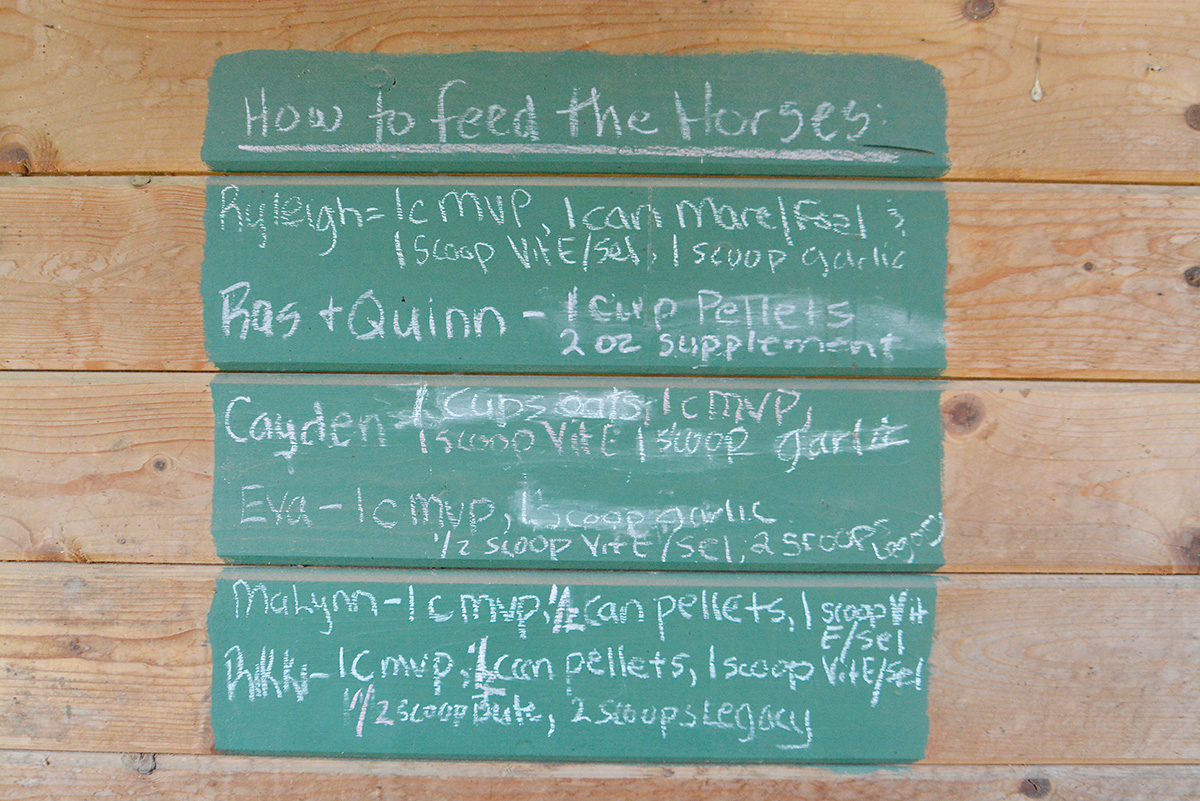 How to feed the Horses:
Ryleigh = 1c MVP, 1 can Mare/Foal &
1 scoop Vit E/sel, 1 scoop garlic
Ras + Quinn - 1 cup Pellets
2 oz supplement
Cayden - 1 cups oats, 1c MVP,
1 scoop Vit E 1 scoop garlic
Eva - 1c mvp, 1 scoop garlic
1/2 scoop Vit E/Sel, 2 scoops Legacy
MaLynn - 1c mvp, can pellets, 1 scoop Vit
E/sel
Rikki - 1c mvp, can pellets, 1 scoop Vit E/sel
1/2 scoop Bute, 2 scoops Legacy